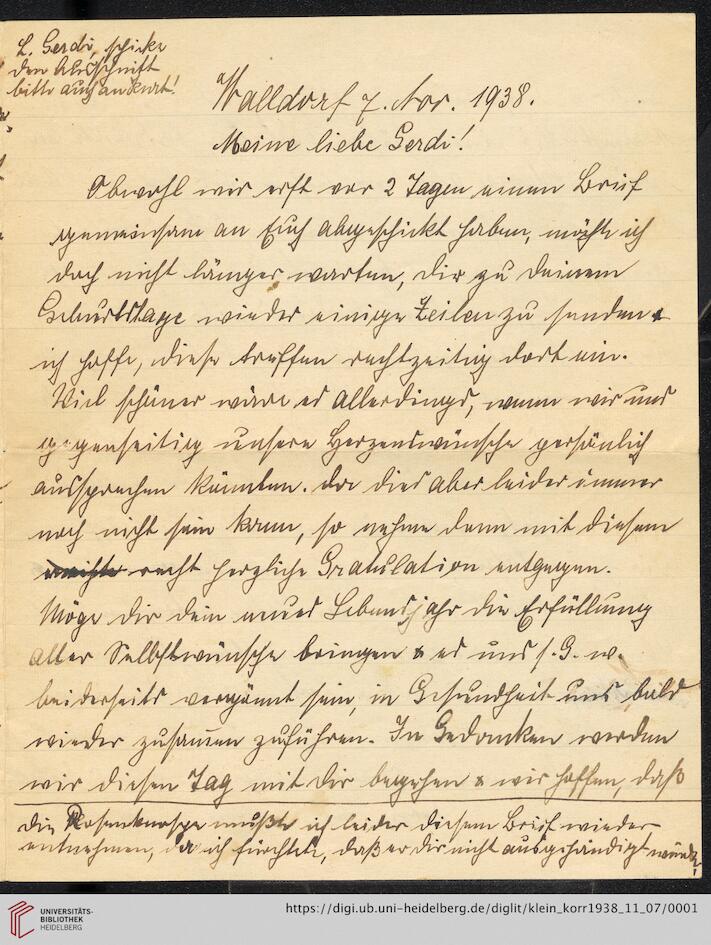 L. Gerdi, schicke
den Ausschnitt
bitte auch an Kurt!
Walldorf 7. Nov. 1938.
Meine liebe Gerdi!
Obwohl wir erst vor 2 Tagen einen Brief
gemeinsam an Euch abgeschickt haben, möchte ich
doch nicht länger warten, Dir zu Deinem
Geburtstage wieder einige Zeilen zu senden &
ich hoffe, diese treffen rechtzeitig dort ein.
Viel schöner wäre es allerdings, wenn wir uns
gegenseitig unsere Herzenswünsche persönlich
aussprechen könnten. Da dies aber leider immer
noch nicht sein kann, so nehme denn mit diesem
recht herzliche Gratulation entgegen.
Möge Dir dein neues Lebensjahr die Erfüllung
aller Selbstwünsche bringen & es uns s. G. w.
beiderseits vergönnt sein, in Gesundheit uns bald
wieder zusammen zuführen. In Gedanken werden
wir diesen Tag mit Dir begehen & wir hoffen, daß
Die Rosenknospe mußte ich leider diesem Brief wieder
entnehmen, da ich fürchtete, daß er Dir nicht ausgehändigt würde!
UNIVERSITÄTS-
BIBLIOTHEK
HEIDELBERG
https://digi.ub.uni-heidelberg.de/diglit/klein_korr1938_11_07/0001